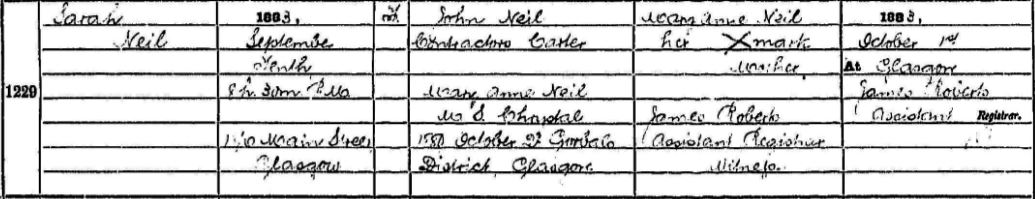 1229
Sarah
Neil
1883,
September
Tenth
5h. 30m. P.M.
Main Street
Glasgow
John Neil
Contractors Carter
Mary Anne Neil
M.S.
October Gorbals
District, Glasgow
Mary Anne Neil
her X mark
Mother
James Roberts
Assistant Registrar
Witness.
1883,
October 1st
At Glasgow
James Roberts
Assistant Registrar.